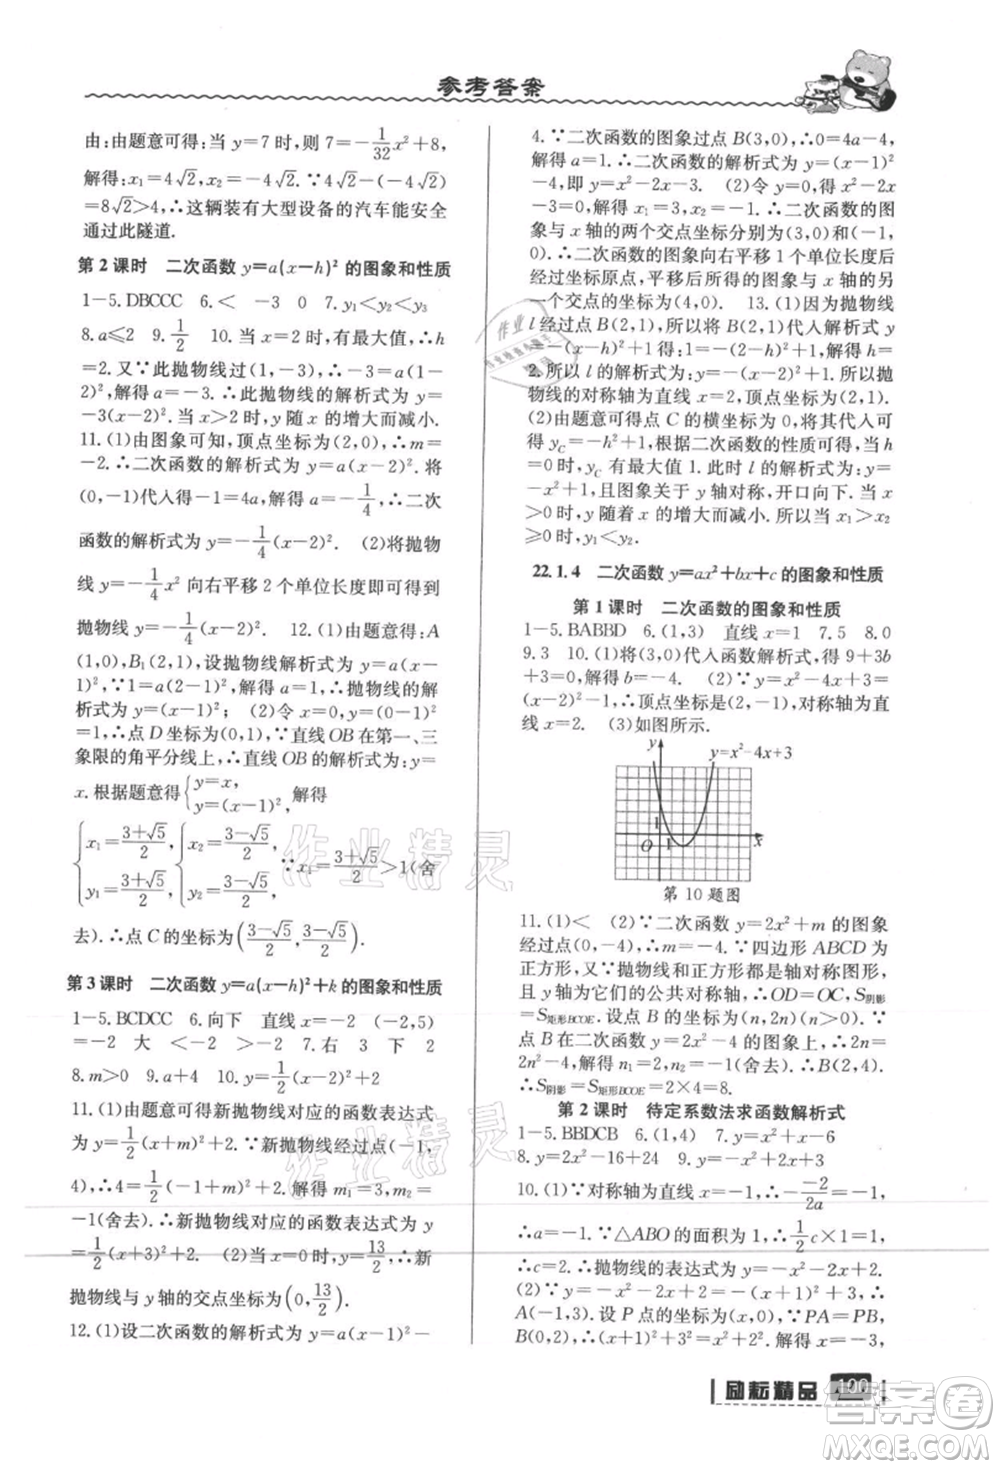 参考答案
由:由题意可得:当 y=7 时,则 7=-1/32x²+8,
解得:x₁=4√2,x₂=-4√2.∵4√2-(-4√2)
=8√2>4,∴这辆装有大型设备的汽车能安全
通过此隧道.
第 2 课时 二次函数 y=a(x-h)² 的图象和性质
1-5.DBCCC 6.< -3 0 7.y₁<y₂<y₃
8.a≤2 9.1/2 10.当 x=2 时,有最大值,∴h
=2.又∵此抛物线过(1,-3),∴-3=a(1-
2)² 解得 a=-3.∴此抛物线的解析式为 y=
-3(x-2)².当 x>2 时,y 随 x 的增大而减小.
11.(1)由图象可知,顶点坐标为(2,0),∴m=
-2.∴二次函数的解析式为 y=a(x-2)².将
(0,-1)代入得-1=4a,解得 a=-1/4,∴二次
函数的解析式为 y=-1/4(x-2)² (2)将抛物
线 y=-1/4x² 向右平移 2 个单位长度即可得到
抛物线 y=-1/4(x-2)². 12.(1)由题意得:A
(1,0),B₁(2,1),设抛物线的解析式为 y=a(x
-1)²,∵1=a(2-1)²,∴a=1,∴抛物线的解
析式为 y=(x-1)²; (2)令 x=0,得 y=(0-1)²
=1,∴点 D 坐标为(0,1),∵直线 OB 在第一、三
象限的角平分线上,∴直线 OB 的解析式为 y=
x.根据题意得{y=x, y=(x-1)²,解得
{x₁=(3+√5)/2, y₁=(3+√5)/2, {x₂=(3-√5)/2, y₂=(3-√5)/2, ∵x₁=(3+√5)/2>1(舍
去).∴点 C 的坐标为((3-√5)/2,(3-√5)/2).
第 3 课时 二次函数 y=a(x-h)²+k 的图象和性质
1-5.BCDCC 6.向下 直线 x=-2 (-2,5)
=-2 大 <-2 >-2 7.右 3 下 2
8.m>0 9.a+4 10.y=1/2(x-2)²-2
11.(1)由题意可得新抛物线对应的函数表达式
为 y=1/2(x+m)²+2,∵新抛物线经过点(-1,
4),∴4=1/2(-1+m)²+2,解得 m₁=3,m₂=
-1(舍去).∴新抛物线对应的函数表达式为 y
=1/2(x+3)²+2 (2)当 x=0 时,y=13/2,∴新
抛物线与 y 轴的交点坐标为(0,13/2).
12.(1)设二次函数的解析式为 y=a(x-1)²-
4.∵二次函数的图象过点 B(3,0),∴0=4a-4,
解得 a=1.∴二次函数的解析式为 y=(x-1)²
-4,即 y=x²-2x-3. (2)令 y=0,得 x²-2x-
3=0,解得 x₁=3,x₂=-1.∴二次函数的图
象与 x 轴的两个交点坐标分别为(3,0)和(-1,
0),∴二次函数的图象向右平移 1 个单位长度后
经过坐标原点,平移后所得的图象与 x 轴的
另一个交点的坐标为(4,0). 13.(1)因为抛物线
l 经过点 B(2,1),所以将 B(2,1)代入解析式 y
=-(x-h)²+1 得:1=-(2-h)²+1,解得 h=
2.所以 l 的解析式为 y=-(x-2)²+1.此时抛
物线的对称轴为直线 x=2,顶点坐标为(2,1).
(2)由前问可知点 C 的横坐标为 0,将其代入可
得 y_C=-h²+1,根据二次函数的性质可得,当 h
=0 时,y_C 有最大值 1.此时 l 的解析式为 y=
-x²+1,且图象关于 y 轴对称,开口向下.当 x
>0 时,y 随着 x 的增大而减小.所以,当 x₁>x₂
>0 时,y₁<y₂.
22.1.4 二次函数 y=ax²+bx+c 的图象和性质
第 1 课时 二次函数的图象和性质
1-5.BABBD 6.(1,3) 直线 x=1 7.5 8.0
9.3 10.(1)将(3,0)代入函数解析式,得 9+3b
+3=0,解得 b=-4. (2)∵y=x²-4x+3=
(x-2)²-1,∴顶点坐标是(2,-1),对称轴为直
线 x=2. (3)如图所示.
y
y=x²-4x+3
1
O 1 x
第 10 题图
11.(1)< (2)∵二次函数 y=2x²+m 的图象
经过点(0,-4),∴m=-4.∵四边形 ABCD 为
正方形,又∵抛物线和正方形都是轴对称图形,
且 y 轴为它们的公共对称轴,∴OD=OC,S阴影
=S矩形BCOE.设点 B 的坐标为(n,2n)(n>0).∵
点 B 在二次函数 y=2x²-4 的图象上,∴2n=
2n²-4,解得 n₁=2,n₂=-1(舍去).∴B(2,4).
∴S阴影=S矩形BCOE=2×4=8.
第 2 课时 待定系数法求函数解析式
1-5.BBDCB 6.(1,4) 7.y=x²+x-6
8.y=2x²-16+24 9.y=-x²+2x+3
10.(1)∵对称轴为直线 x=-1,∴-(-2)/2a=-1,
∴a=-1.∵△ABO 的面积为 1,∴1/2c×1=1,
∴c=2.∴抛物线的表达式为 y=-x²-2x+2.
(2)∵y=-x²-2x+2=-(x+1)²+3,∴
A(-1,3).设 P 点的坐标为(x,0),∵PA=PB,
B(0,2),∴(x+1)²+3²=x²+2²,解得 x=-3,
励耘精品 100
作业精灵
作业精灵
答案圈
MXQE.COM